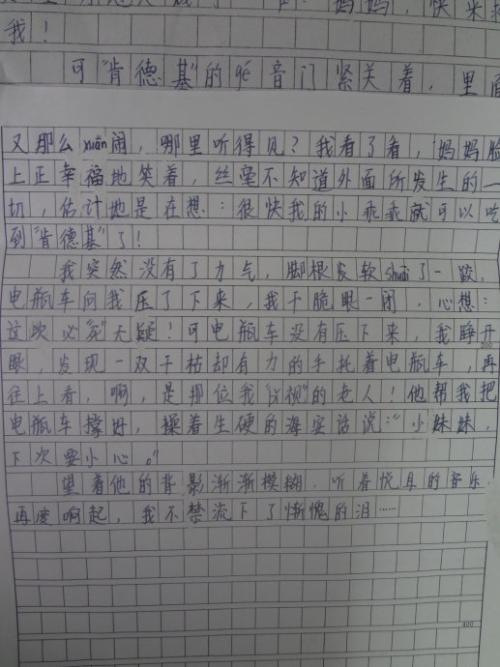 妈妈，快来
我！
可“肯德基”的gé音门紧关着，里面
又那么xuān闹，哪里听得见？我看了看，妈妈脸
上正幸福地笑着，丝毫不知道外面所发生的一
切，估计她是在想：很快我的小乖乖就可以吃
到“肯德基”了！
我突然没有了力气，脚根发软shuāi了一跤，
电瓶车向我压了下来，我干脆眼一闭，心想：
这次必“死”无疑！可电瓶车没有压下来，我睁开
眼，发现一双干枯却有力的手托着电瓶车，再
往上看，啊，是那位我“ 视”的老人！他帮我把
电瓶车撑好，操着生硬的海安话说：“小妹妹，
下次要小心。”
望着他的背影渐渐模糊，听着悦耳的音乐
再度响起，我不禁流下了惭愧的泪……
400